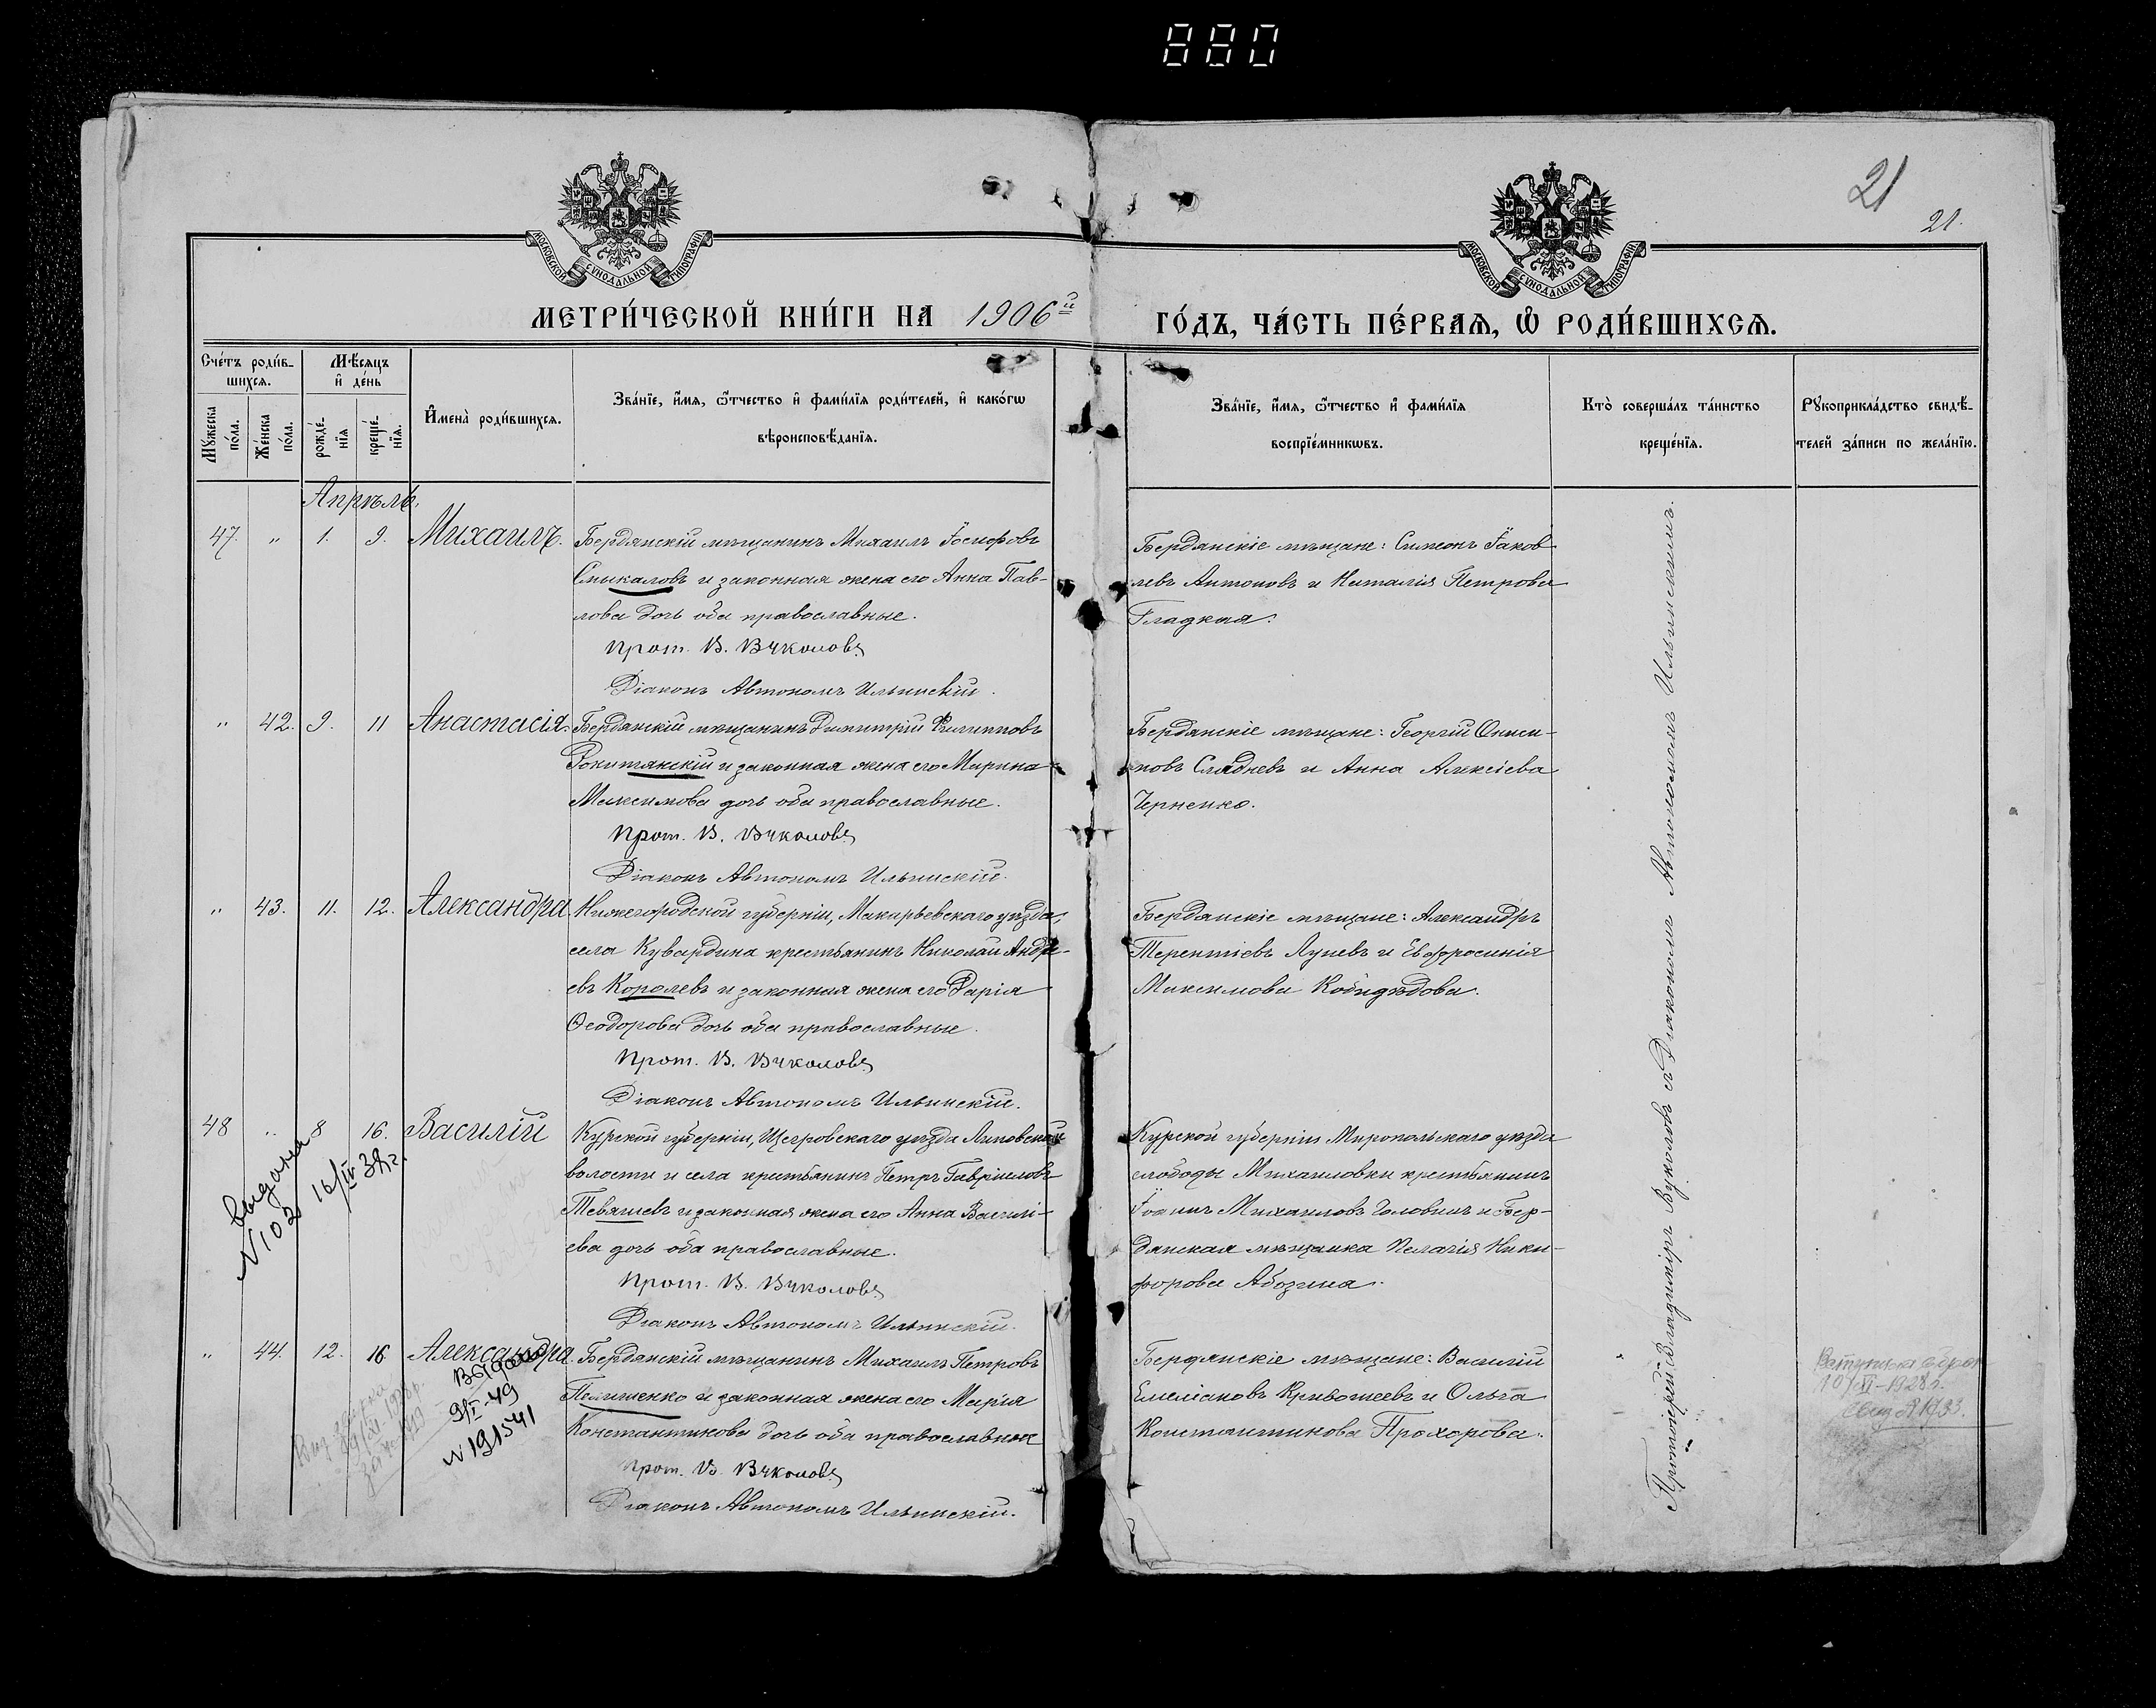 880
21
21.
МОСКОВСКОЙ СѴНОДАЛЬНОЙ ТИПОГРАФІИ
МОСКОВСКОЙ СѴНОДАЛЬНОЙ ТИПОГРАФІИ
МЕТРИ́ЧЕСКОЙ КНИ́ГИ НА 1906й
ГО́ДЪ, ЧА́СТЬ ПЕ́РВАЯ, Ѽ РОДИ́ВШИХСЯ.
Сче́тъ роди́в-
шихся.
Мꙋ́жеска по́ла.
Же́нска по́ла.
Мѣ́сяцъ
и҆ де́нь
рожде́-
нїя
креще́-
нїя.
И҆мена̀ роди́вшихся.
Зва́нїе, и҆́мя, ѻ҆́тчество и҆ фами́лїя роди́телей, и҆ како́гѡ
вѣроисповѣ́данїя.
Зва́нїе, и҆́мя, ѻ҆́тчество и҆ фами́лїя
воспрїе́мникѡвъ.
Кто̀ соверша́лъ та́инство
креще́нїя.
Рꙋкоприкла́дство свидѣ́-
телей за́писи по жела́нїю.
Апрѣль.
47. " 1. 9. Михаилъ.
Бердянскій мѣщанинъ Михаилъ Іосифовъ
Смыкаловъ и законная жена его Анна Пав-
лова дочь оба православные.
Прот. В. Вуколовъ
Діаконъ Автономъ Ильинскій.
Бердянскіе мѣщане: Симеонъ Іаков-
левъ Антоновъ и Наталія Петрова
Гладкая.
" 42. 9. 11 Анастасія.
Бердянскій мѣщанинъ Димитрій Филипповъ
Рокитянскій и законная жена его Марина
Максимова дочь оба православные.
Прот. В. Вуколовъ
Діаконъ Автономъ Ильинскій.
Бердянскіе мѣщане: Георгій Ониси-
мовъ Слядневъ и Анна Алексіева
Черненко.
" 43. 11. 12. Александра.
Нижегородской губерніи, Макарьевскаго уѣзда,
села Кувардина крестьянинъ Николай Андре-
евъ Королевъ и законная жена его Дарія
Ѳеодорова дочь оба православные.
Прот. В. Вуколовъ
Діаконъ Автономъ Ильинскій.
Бердянскіе мѣщане: Александръ
Терентіевъ Лупевъ и Евфросинія
Максимова Кобидѣдова.
48 " 8 16. Василій
Курской губерніи, Щигровскаго уѣзда Липовской
волости и села крестьянинъ Петръ Гавріиловъ
Тевяшевъ и законная жена его Анна Василі-
ева дочь оба православные.
Прот. В. Вуколовъ
Діаконъ Автономъ Ильинскій.
Курской губерніи Миропольскаго уѣзда
слободы Михаиловки крестьянинъ
Іоаннъ Михаиловъ Головинъ и Бер-
дянская мѣщанка Пелагія Ники-
форова Абозина.
выдана
N 102 16/IV 38г.
" 44. 12. 16 Александра.
Бердянскій мѣщанинъ Михаилъ Петровъ
Пелишенко и законная жена его Марія
Константинова дочь оба православные
Прот. В. Вуколовъ
Діаконъ Автономъ Ильинскій.
Бердянскіе мѣщане: Василій
Емеліановъ Кривошеевъ и Ольга
Константинова Прохорова.
Выдано
9/I-49
N 191541
Протоіерей Владиміръ Вуколовъ съ Діакономъ Автономомъ Ильинскимъ.
10/XI-1928 г.